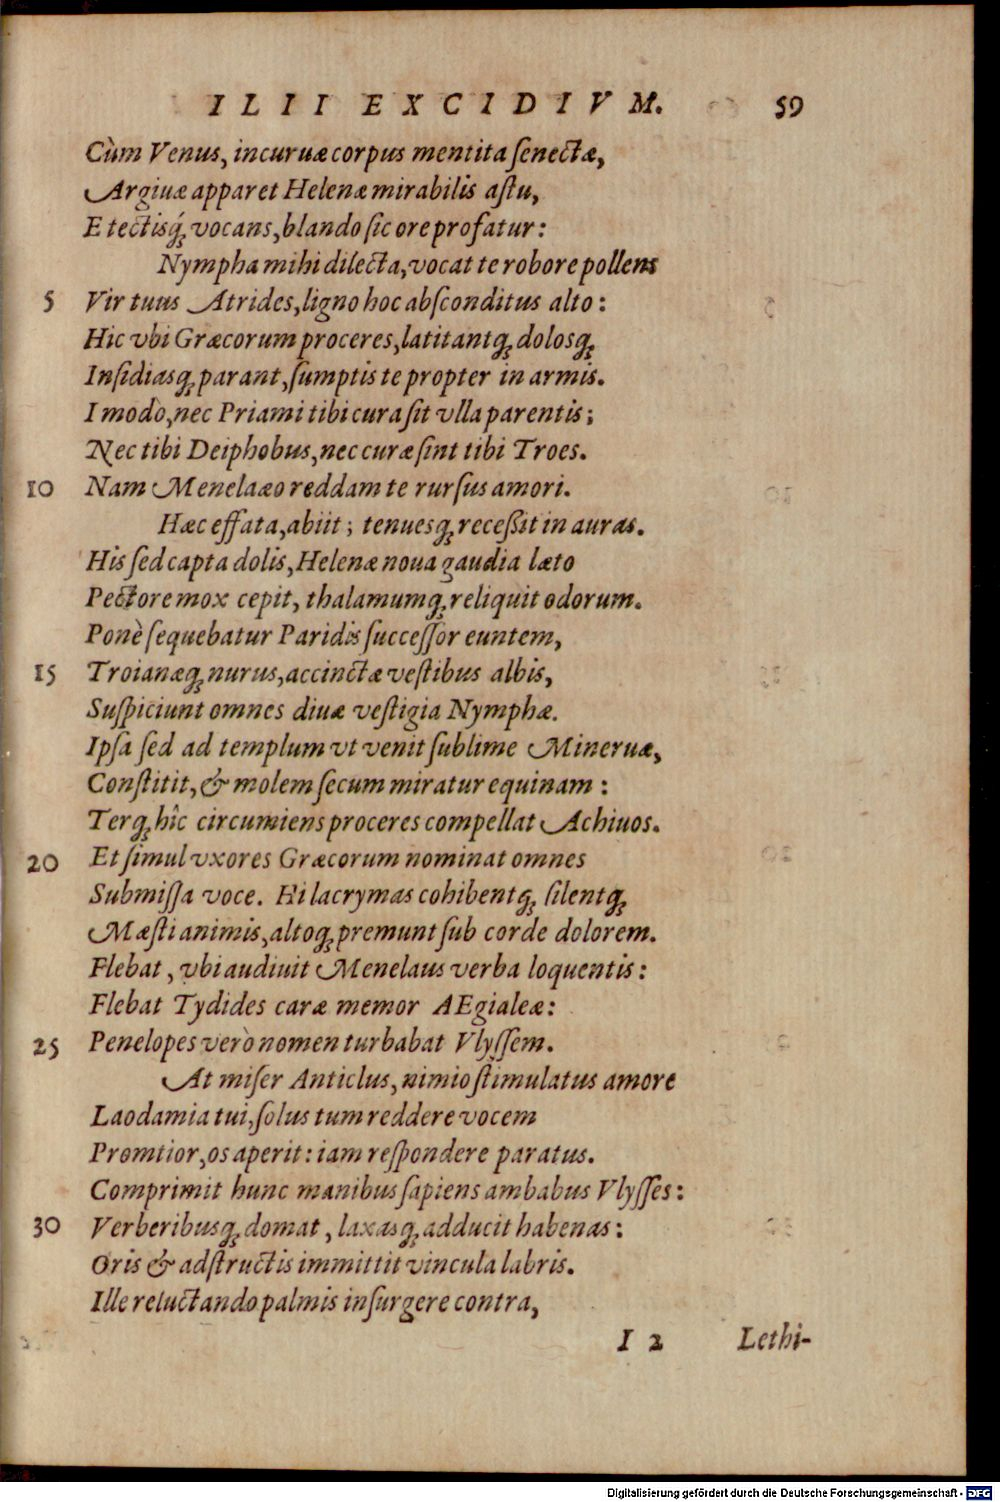 ILII EXCIDIVM. 59
Cùm Venus, incuruæ corpus mentita ſenectæ,
Argiuæ apparet Helenæ mirabilis aſtu,
E tectisq́; vocans, blando ſic ore profatur:
Nympha mihi dilecta, vocat te robore pollens
5 Vir tuus Atrides, ligno hoc abſconditus alto:
Hic vbi Græcorum proceres, latitantq; dolosq;
Inſidiasq; parant, ſumptis te propter in armis.
I modò, nec Priami tibi cura ſit vlla parentis;
Nec tibi Deiphobus, nec curæ ſint tibi Troes.
10 Nam Menelaæo reddam te rurſus amori.
Hæc effata, abiit; tenuesq; receßit in auras.
His ſed capta dolis, Helenæ noua gaudia læto
Pectore mox cepit, thalamumq; reliquit odorum.
Ponè ſequebatur Paridis ſucceſſor euntem,
15 Troianæq; nurus, accinctæ veſtibus albis,
Suſpiciunt omnes diuæ veſtigia Nymphæ.
Ipſa ſed ad templum vt venit ſublime Mineruæ,
Conſtitit, & molem ſecum miratur equinam:
Terq; hîc circumiens proceres compellat Achiuos.
20 Et ſimul vxores Græcorum nominat omnes
Submiſſa voce. Hi lacrymas cohibentq; ſilentq;
Mæſti animis, altoq; premunt ſub corde dolorem.
Flebat, vbi audiuit Menelaus verba loquentis:
Flebat Tydides caræ memor AEgialeæ:
25 Penelopes verò nomen turbabat Vlyſſem.
At miſer Anticlus, nimio ſtimulatus amore
Laodamia tui, ſolus tum reddere vocem
Promtior, os aperit: iam reſpondere paratus.
Comprimit hunc manibus ſapiens ambabus Vlyſſes:
30 Verberibusq; domat, laxasq; adducit habenas:
Oris & adſtructis immittit vincula labris.
Ille reluctando palmis inſurgere contra,
I 2 Lethi-
Digitalisierung gefördert durch die Deutsche Forschungsgemeinschaft - DFG